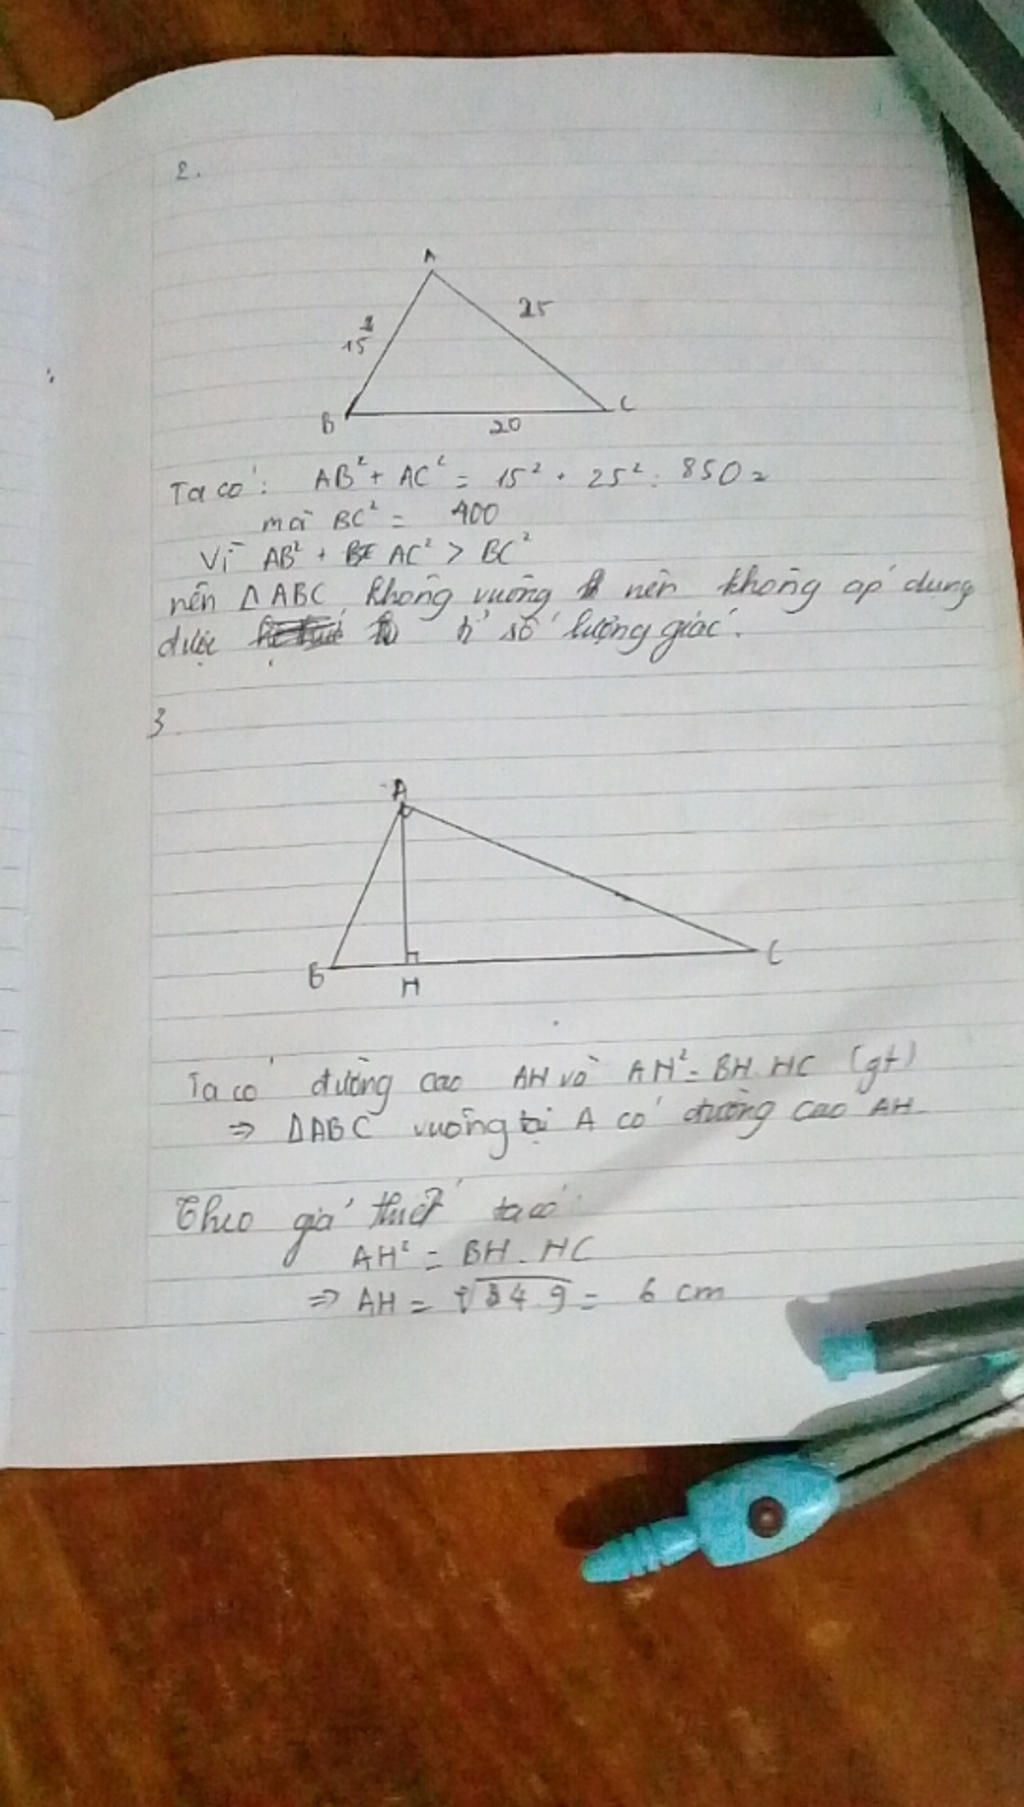 2.
A
15
25
B
20
C
Ta có: AB² + AC² = 15² + 25² = 850
mà BC² = 400
Vì AB² + AC² > BC²
nên ΔABC không vuông nên không áp dụng
được tỉ số lượng giác.
3.
A
B
H
C
Ta có đường cao AH và AH² = BH.HC (gt)
⇒ ΔABC vuông tại A có đường cao AH.
Theo giả thiết ta có:
AH² = BH.HC
⇒ AH = √4.9 = 6 cm